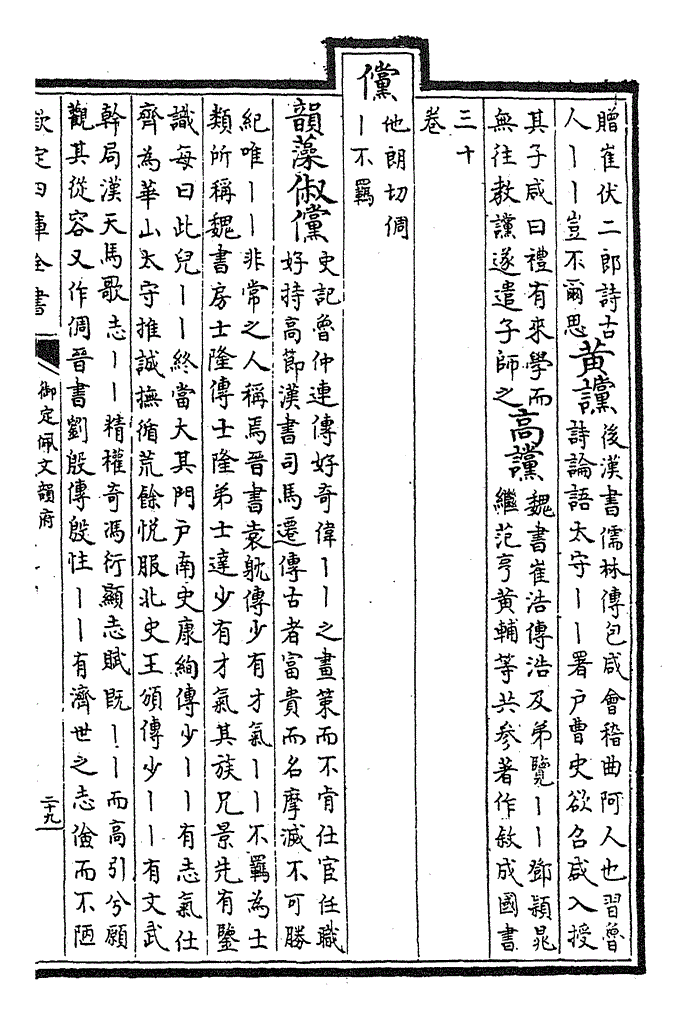 贈崔伏二郎詩古
人丨丨豈不爾思
黃讜
後漢書儒林傳包咸會稽曲阿人也習魯
詩論語太守丨丨署戶曹史欲召咸入授
其子咸曰禮有來學而
無往教讜遂遣子師之
高讜
魏書崔浩傳浩及弟覽丨丨鄧穎晁
繼范亨黃輔等共參著作敘成國書
三十
卷
儻
他朗切倜
丨不羈
韻藻俶儻
史記魯仲連傳好奇偉丨丨之畫策而不肯仕宦任職
好持高節漢書司馬遷傳古者富貴而名摩滅不可勝
紀唯丨丨非常之人稱焉晉書袁躭傳少有才氣丨丨不羈為士
類所稱魏書房士隆傳士隆弟士達少有才氣其族兄景先有鑒
識每曰此兒丨丨終當大其門戶南史康絢傳少丨丨有志氣仕
齊為華山太守推誠撫循荒餘悅服北史王頒傳少丨丨有文武
幹局漢天馬歌志丨丨精權奇馮衍顯志賦既丨丨而高引兮願
觀其從容又作倜晉書劉殷傳殷性丨丨有濟世之志儉而不陋
欽定四庫全書
御定佩文韻府
二十九